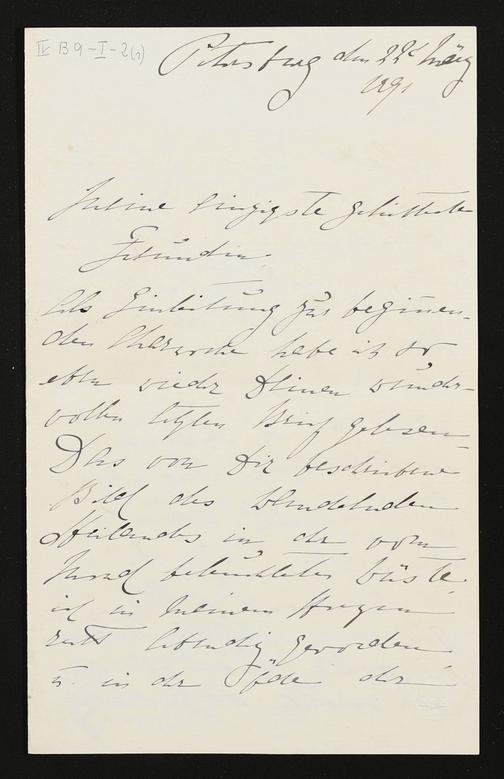 IV B 9-I-2(1)
Petersburg den 22t März
1891
Meine Einzigste geliebteste
Freundin.
Als Einleitung zur beginnen-
den Charwoche habe ich so
eben wieder Deinen wunder-
vollen letzten Brief gelesen –
Das von Dir beschriebene
Bild des wandelnden
Heilandes in der vom
Mond beleuchteten Wüste,
ist in meinem Herzen
recht lebendig geworden,
u. in der Öde der